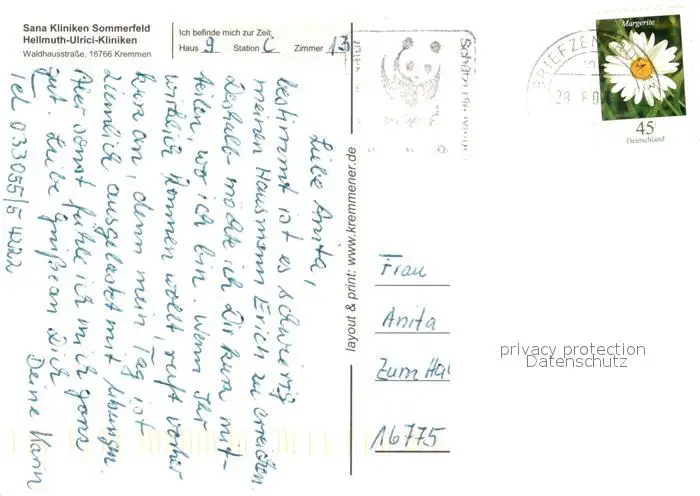 Sana Kliniken Sommerfeld
Hellmuth-Ulrici-Kliniken
Waldhausstraße, 16766 Kremmen
Ich befinde mich zur Zeit:
Haus 9 Station C Zimmer 13
Liebe Anita,
bestimmt ist es schwierig
meinen Hausmann Erich zu erreichen.
Deshalb möchte ich Dir kurz mit-
teilen, wo ich bin. Wenn Ihr
wirklich kommen wollt, ruft vorher
kurz an, denn mein Tag ist
ziemlich ausgelastet mit Übungen.
Aber sonst fühle ich mich ganz
gut. Liebe Grüße an Dich
Deine Karin
Tel 033055/5 4222
layout & print: www.kremmener.de
BRIEFZEN
Margerite
45
Deutschland
Frau
Anita
Zum Ha
16775
privacy protection
Datenschutz